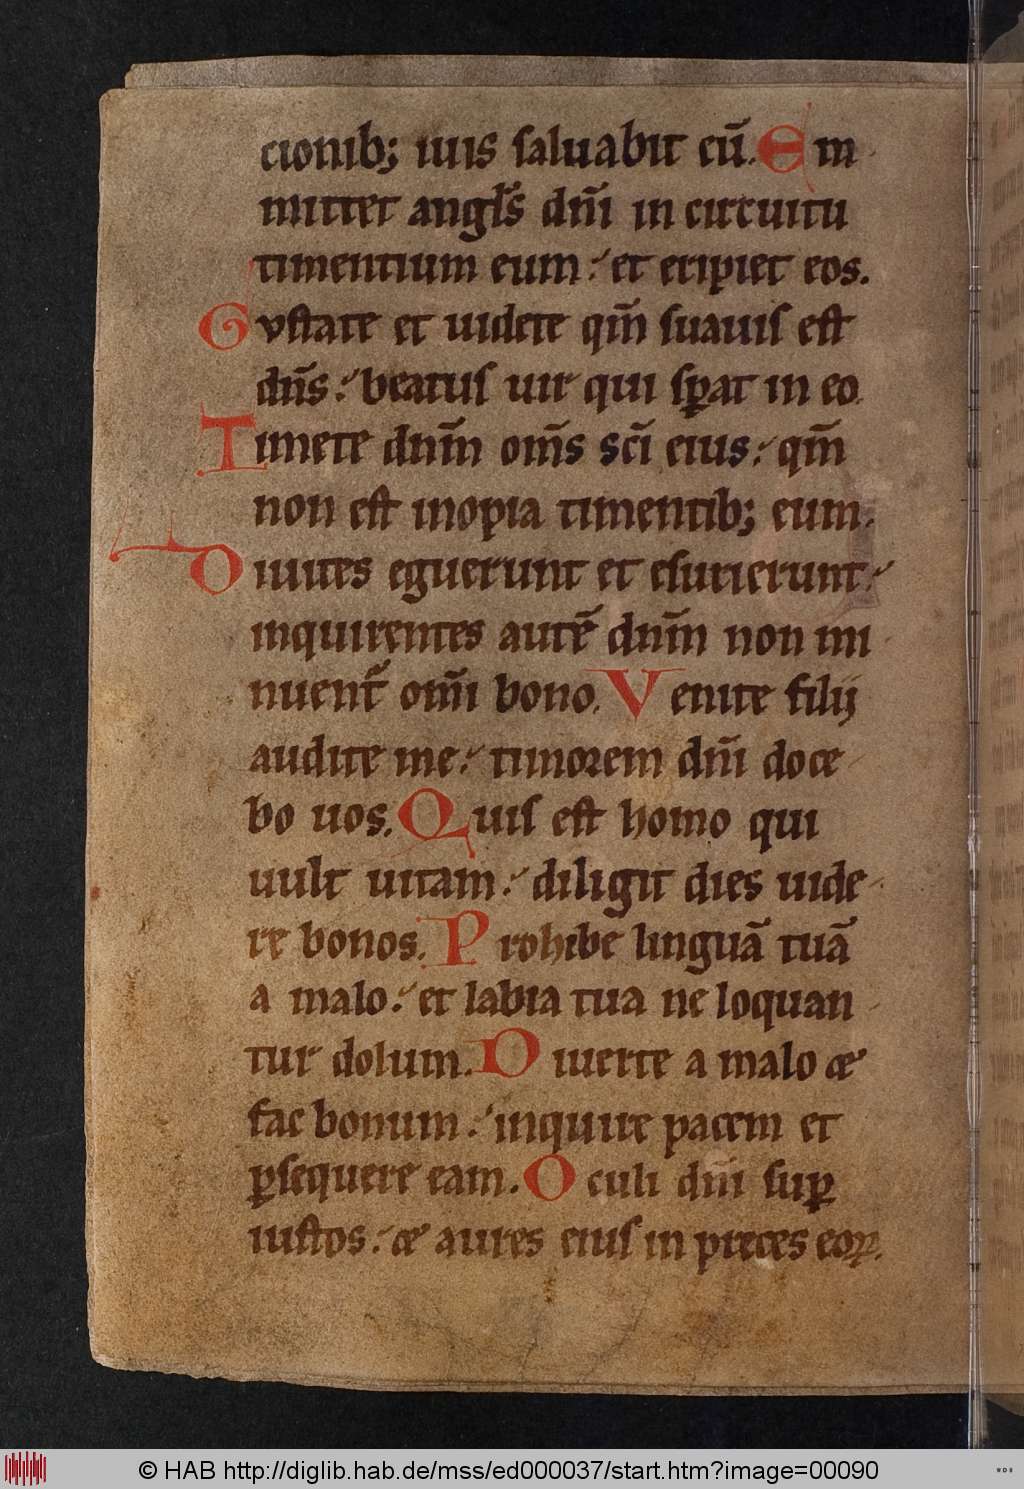 cionib; iuis saluabit eū. Em
mittet angľs dñi in circuitu
timentium eum: et eripiet eos.
Gvstate et uidete qm̄ suauis est
dñs: beatus uir qui sꝑat in eo.
Timete dnm̄ om̄s sc̄i eius: qm̄
non est inopia timentib; eum.
Diuites eguerunt et esurierunt:
inquirentes autē dnm̄ non mi
nuent᷑ om̄i bono. Venite filij
audite me: timorem dñi doce
bo uos. Quis est homo qui
uult uitam: diligit dies uide
re bonos. Prohibe linguā tuā
a malo: et labia tua ne loquan
tur dolum. Diuerte a malo &
fac bonum: inquire pacem et
ꝑsequere eam. Oculi dñi suꝑ
iustos: & aures eius in preces eoꝝ.
© HAB http://diglib.hab.de/mss/ed000037/start.htm?image=00090